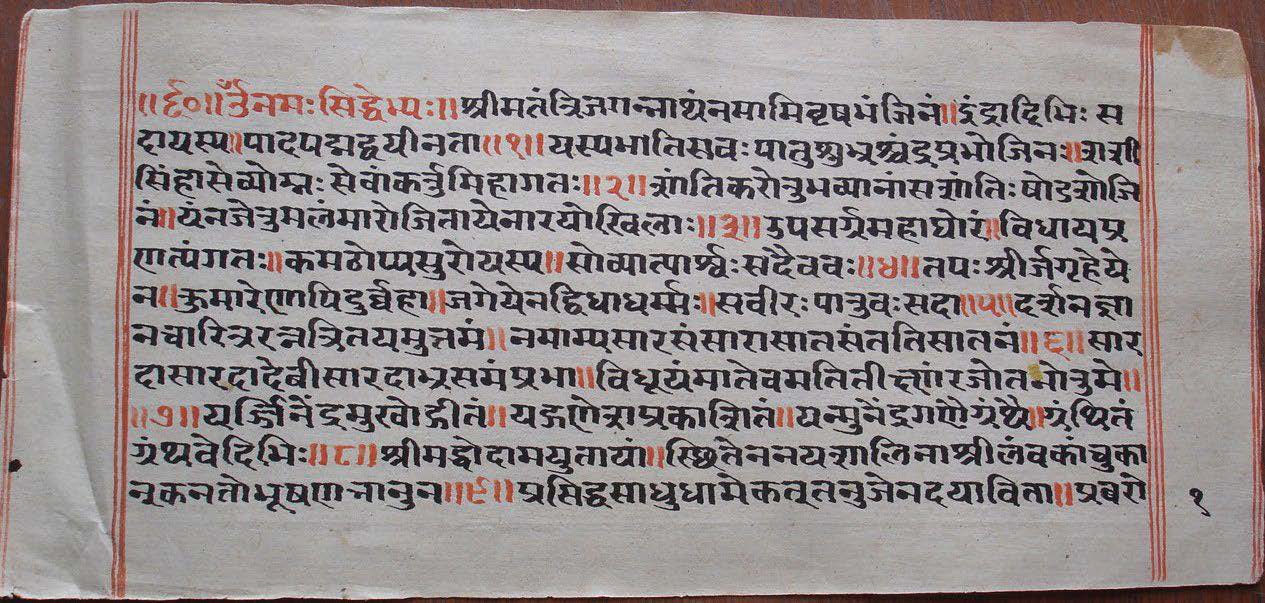 ॥र्द०॥ ॐनमःसिद्धेभ्यः॥ श्रीमतंत्रिजगन्नाथंनमामिवृषभंजिनं॥ इंद्रादिभिः स
दायस्य॥ पादपद्मद्वयीनता॥१॥ यस्यभातिसवः पातुशुभ्रश्चंद्रप्रभोजिनः॥ राशी
सिंहासेव्योम्नः सेवांकर्त्तुमिहागतः॥२॥ शांतिकरोतुभव्यानांसशांतिः षोडशोजि
नं॥ यंनजेतुमलंमारोजितायेनारयोखिलाः॥३॥ उपसर्गमहाघोरं॥ विधायप्र
णत्यंगतः॥ कमठोप्यसुरोयस्य॥ सोव्यात्पार्श्वः सदैववः॥४॥ तपः श्रीर्जगृहेये
न॥ कुमारेणापिदुर्वहा॥ जगेयेनद्विधाधर्म्मः॥ सवीरः पातुवः सदा॥५॥ दर्शनज्ञा
नचारित्ररत्नत्रितयमुत्तमं॥ नमाम्यसारसंसारासातसंततिसातनं॥६॥ सार
दासारदादेवीसारदाभ्रसमंप्रभा॥ विधूयंमातेवमतितीक्ष्णांरजोतनोतुमे॥
॥७॥ यर्ज्जिनेंद्रमुखोद्गीतं॥ यद्गणेशप्रकाशितं॥ यन्मुनेंद्रगणैर्ग्रंथै॥ ग्रंथितं
ग्रंथवेदिभिः॥८॥ श्रीमद्वोदामयुतायां॥ स्छितेननयशालिनाश्रीलंवकांचुका
नूकनतोभूषणनानुन॥९॥ प्रसिद्धसाधुधामेकतनूतनुजेनदयाविता॥ प्रबरो
१